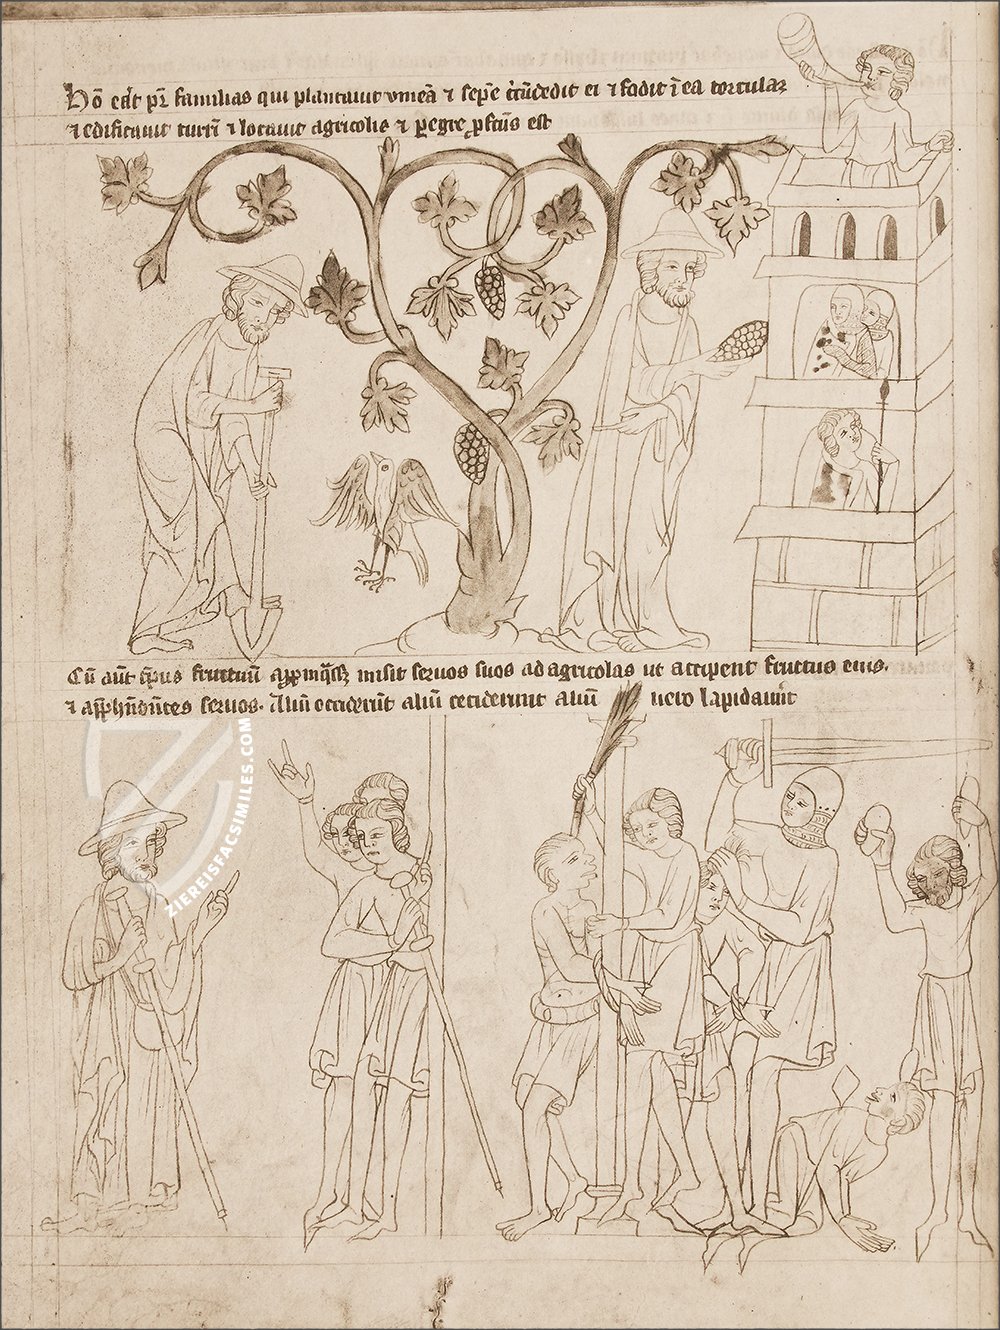 Hõ erat pr̃ familias qui plantavit vineã ⁊ sepẽ cr̃cũdedit ei ⁊ fodit ĩ ea torcular
⁊ edificavit turrĩ ⁊ locavit agricolis ⁊ pegre pfctũs est
Cũ aũt tp̃us fructuũ misit servos suos ad agricolas ut acciperent fructus eius.
⁊ servos. Aliũ occiderũt aliũ ceciderunt aliũ vero lapidavẽt
ZIEREISFACSIMILES.COM